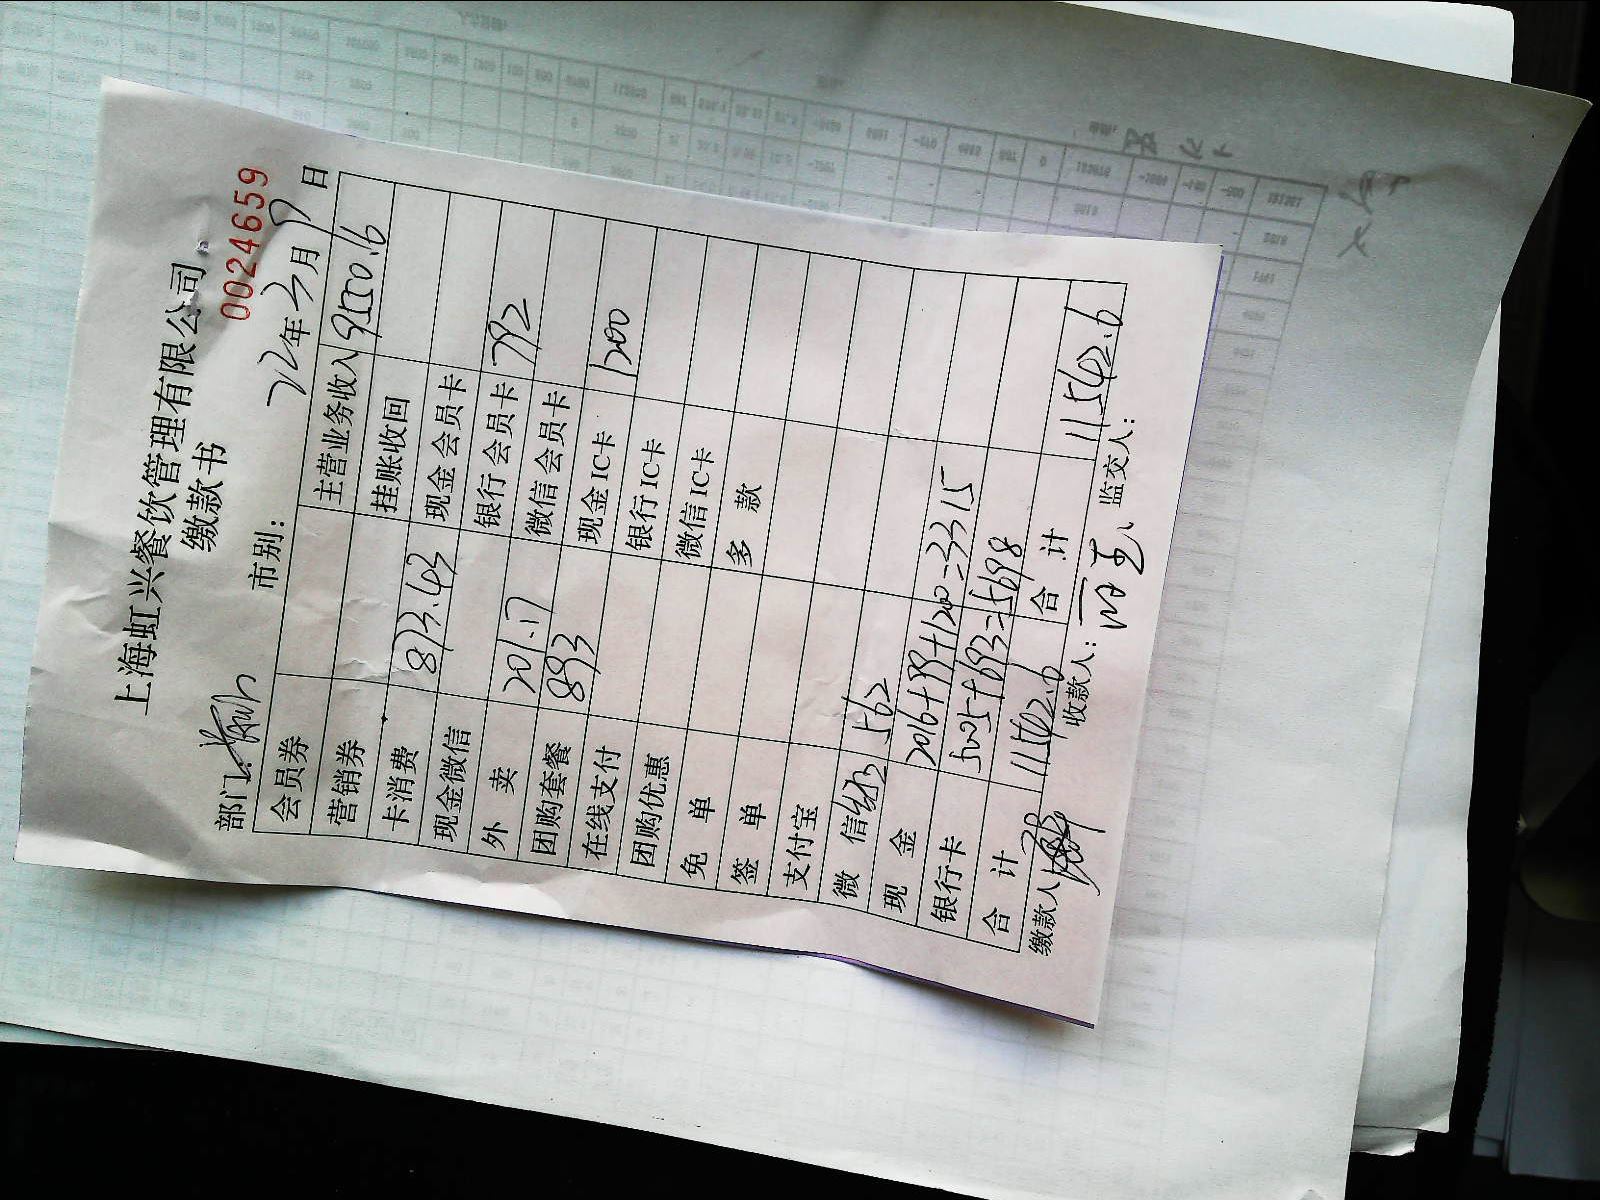 上海虹兴餐饮管理有限公司
缴款书 0024659
部门: 市别: 22年3月 日
会员券 主营业务收入 9550.6
营销券 挂账收回
卡消费 873.43 现金会员卡
现金微信 银行会员卡 792
外 卖 201.17 微信会员卡
团购套餐 893 现金IC卡 1200
在线支付 银行IC卡
团购优惠 微信IC卡
免 单 多 款
签 单
支付宝
微 信 562
现 金 2016+99+1200=3315
银行卡 5005+693=5698
合 计 11542.6 合 计 11542.6
缴款人: 收款人: 监交人: